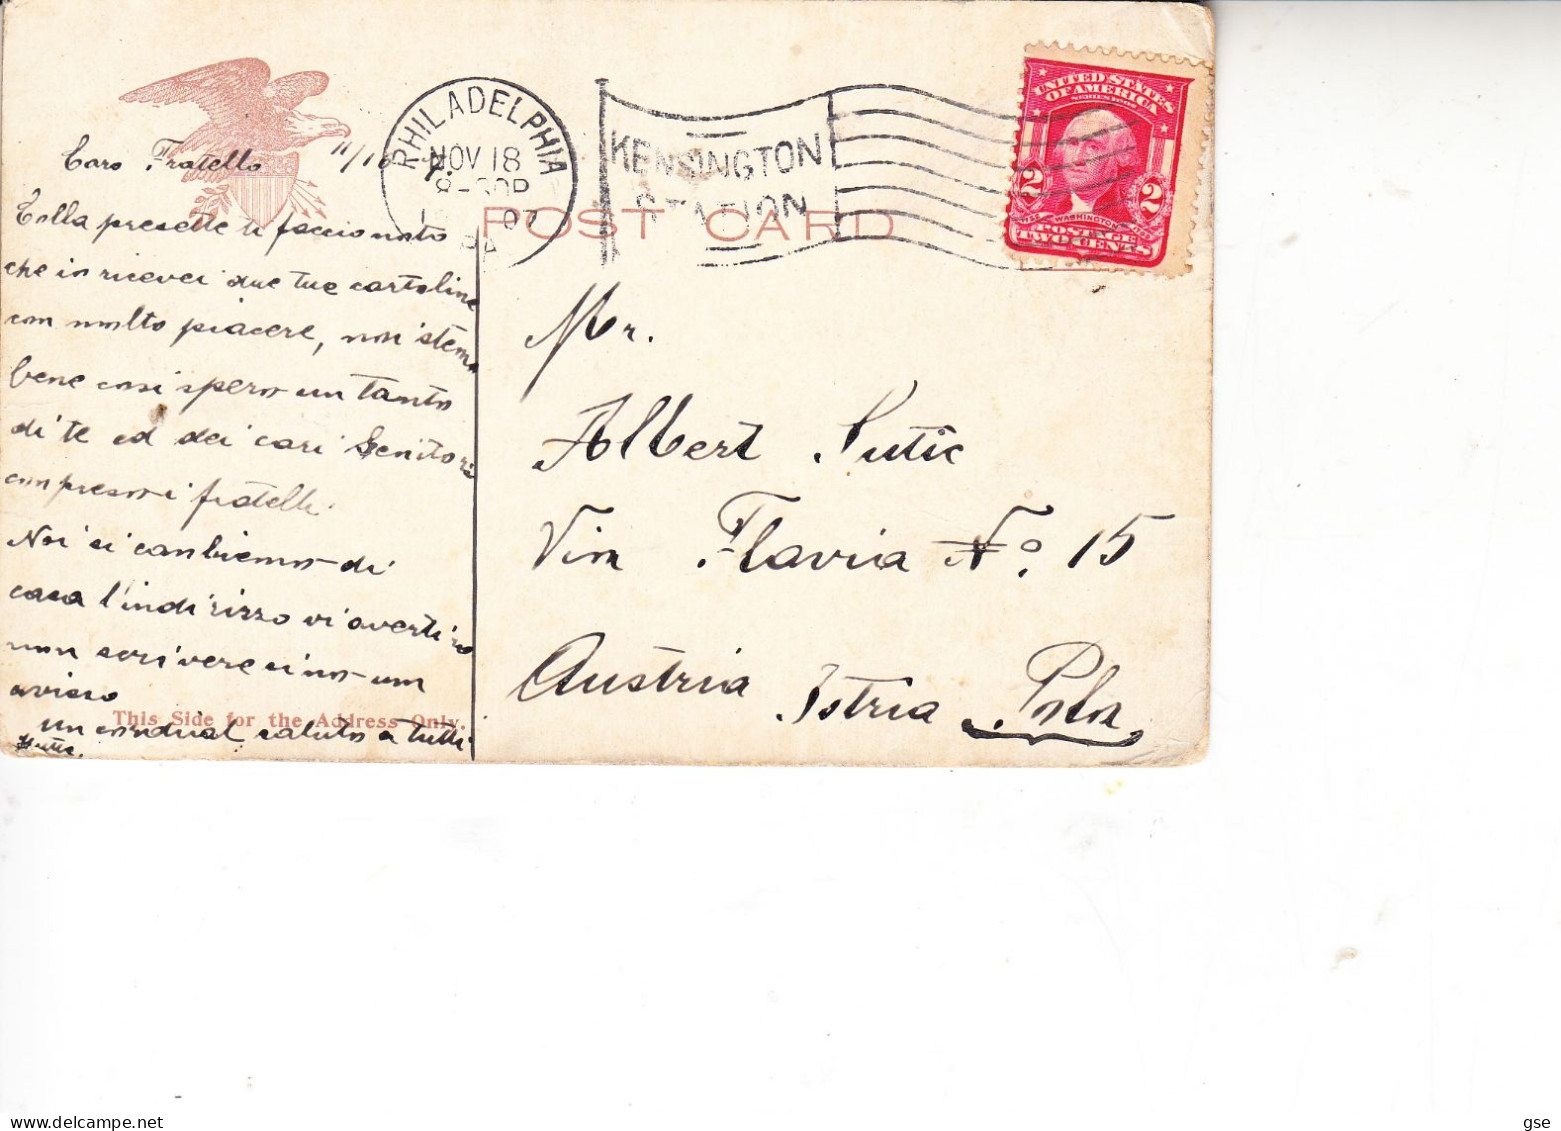 PHILADELPHIA
NOV 18
8-30P
07
PA
KENSINGTON
STATION
UNITED STATES
OF AMERICA
SERIES 1902
2 2
WASHINGTON
POSTAGE
TWO CENTS
POST CARD
Caro Fratello 11/18
Colla presette ti faccio noto
che io ricevei due tue cartoline
con molto piacere, noi stemo
bene cosi spero un tanto
di te ed dei cari Genitori
compreso i fratelli.
Noi si cambiemo di
casa l'indirizzo vi avertiro
non scrivere sino um
aviso
un cordial saluto a tutti
This Side for the Address Only.
Mr.
Albert Sutic
Via Flavia No. 15
Austria Istria Pola
gse